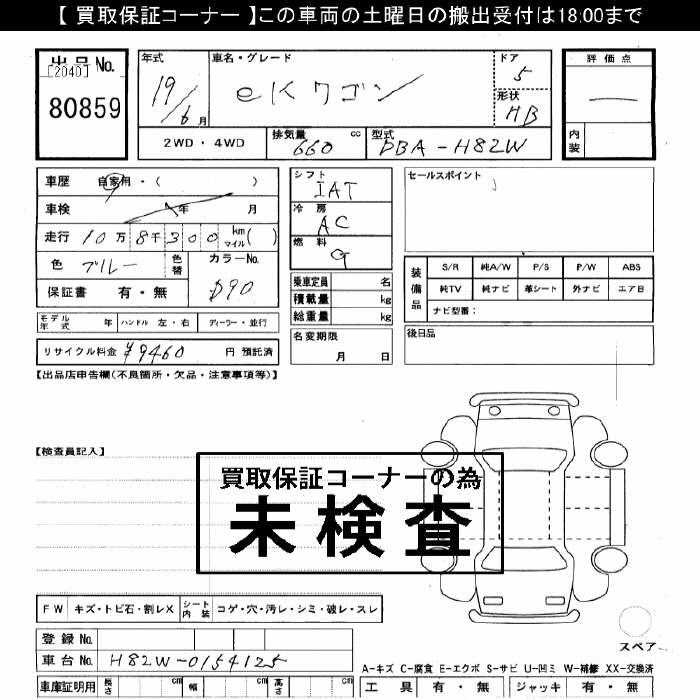 【 買取保証コーナー 】この車両の土曜日の搬出受付は18:00まで
出品No.
[2040]
80859
年式
19/6月
車名・グレード
eKワゴン
ドア
5
形状
HB
2WD・4WD
排気量
660
cc
型式
DBA-H82W
評価点
内装
車歴 自家用・( )
車検 年 月
走行 10万8千300 km マイル( )
色 ブルー
色替
カラーNo.
D90
保証書 有・無
シフト
IAT
冷房
AC
燃料
G
乗車定員 名
積載量 kg
総重量 kg
セールスポイント
装備品
S/R 純A/W P/S P/W ABS
純TV 純ナビ 革シート 外ナビ エアB
ナビ型番:
モデル年式 年 ハンドル 左・右 ディーラー・並行
名変期限
月 日
後日品
リサイクル料金 ¥9460 円 預託済
【出品店申告欄(不良箇所・欠品・注意事項等)】
【検査員記入】
買取保証コーナーの為
未検査
FW キズ・トビ石・割レX シート内装 コゲ・穴・汚レ・シミ・破レ・スレ
登録No.
車台No. H82W-0154125
スペア
車庫証明用 長さ cm 幅 cm 高さ cm
A-キズ C-腐食 E-エクボ S-サビ U-凹ミ W-補修 XX-交換済
工具 有・無 ジャッキ 有・無